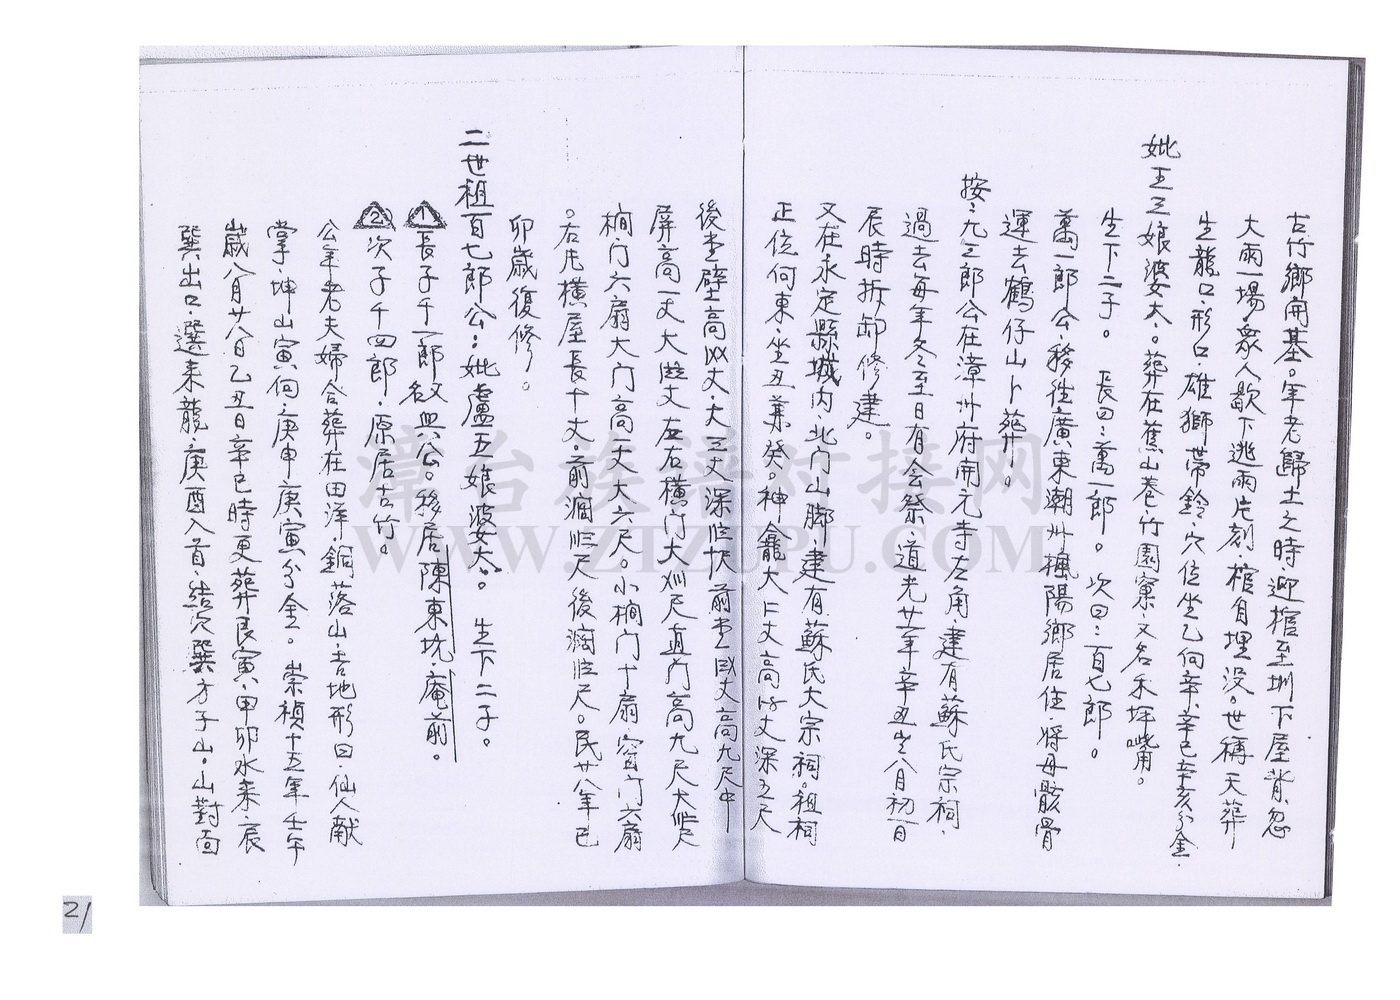 古竹鄉開基。年老歸土之時，迎棺至圳下屋背，忽
大雨一場，衆人歇下逃雨片刻，棺自埋没。世稱天葬
生龍口，形口，雄獅帶鈴，穴位坐乙向辛，辛巳辛亥分金。
妣王三娘婆太。葬在蕉山巷竹園寮，又名禾坪嘴角。
生下二子。長曰：萬一郎。次曰：百七郎。
萬一郎公，移徃廣東潮州揭陽鄉居住，將母骸骨
運去鶴仔山卜葬。
按：九三郎公在漳州府開元寺左角，建有蘇氏宗祠，
過去每年冬至日有会祭，道光廿年辛丑岁八月初一日
辰時拆卸修建。
又在永定縣城内，北门山脚，建有蘇氏大宗祠。祖祠
正位何東，坐丑兼癸。神龕大 丈高 丈深五尺
後堂壁高 丈，大三丈深 前堂 丈高九尺中
屏高一丈大 丈左右横门大 尺直门高九尺大 尺
桐门六扇大门高一丈大六尺。小桐门十扇窗门六扇
。右片横屋長十丈。前濶 尺後濶 尺。民廿八年己
卯歲復修。
二世祖百七郎公：妣盧五娘婆太。生下二子。
①長子千一郎 名 公。移居陳東坑，庵前。
②次子千四郎，原居古竹。
公年老夫婦合葬在田洋，銅落山，吉地形曰，仙人献
掌，坤山寅向，庚申庚寅分金。崇禎十五年壬午
歲八月廿八日乙丑日辛巳時更葬艮寅，甲卯水来，辰
巽出口，選来龍，庚酉入首，結穴巽方子山。山對面
漳台族谱对接网
WWW.ZTZUPU.COM
21